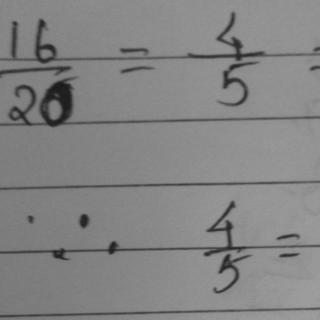 16/20 = 4/5 =
4/5 =